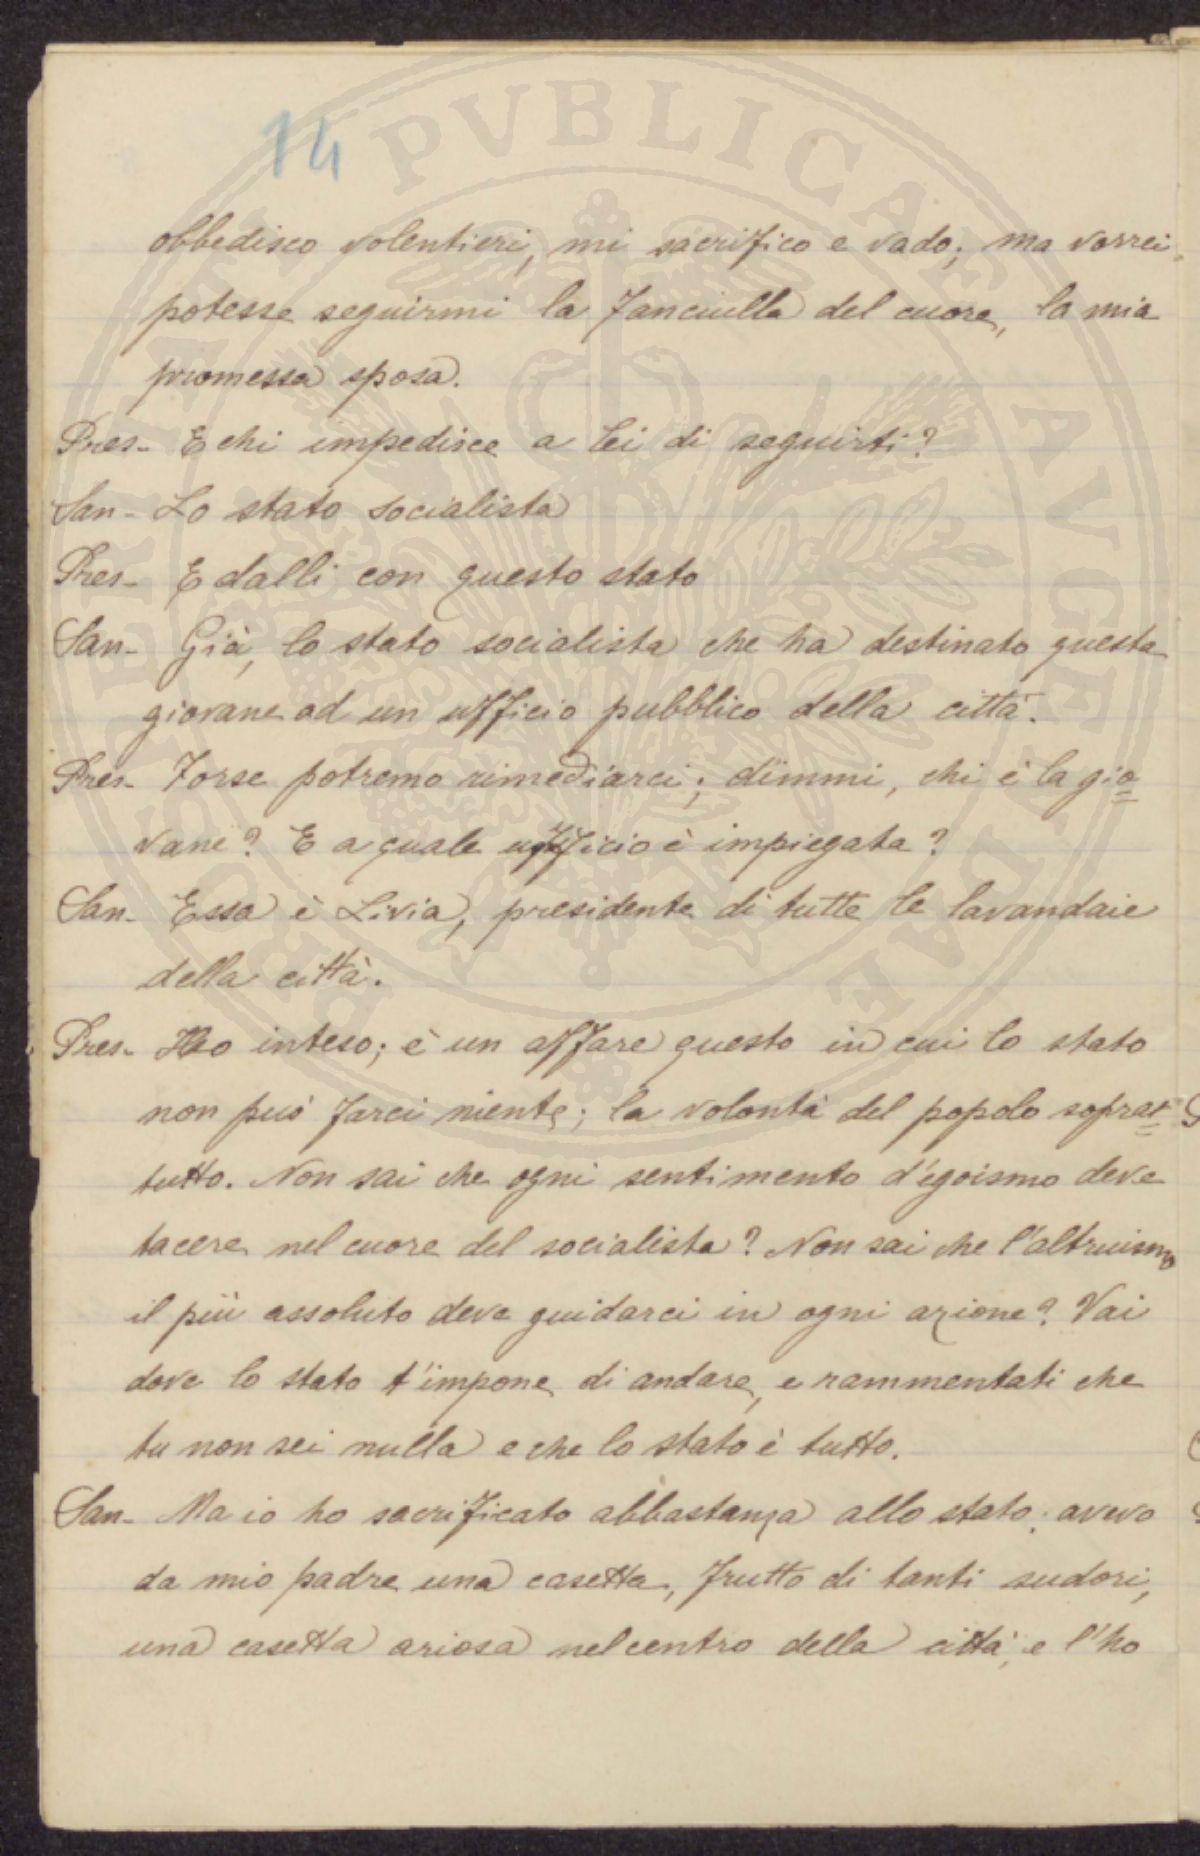 14
obbedisco volentieri, mi sacrifico e vado; ma vorrei
potesse seguirmi la fanciulla del cuore, la mia
promessa sposa.
Pres- E chi impedisce a lei di seguirti?
San- Lo stato socialista
Pres- E dalli con questo stato
San- Già, lo stato socialista che ha destinato questa
giovane ad un ufficio pubblico della città.
Pres- Forse potremo rimediarci; dimmi, chi è la gio=
vane? E a quale ufficio è impiegata?
San- Essa è Livia, presidente di tutte le lavandaie
della città.
Pres- Ho inteso; è un affare questo in cui lo stato
non può farci niente; la volontà del popolo soprat=
tutto. Non sai che ogni sentimento d'egoismo deve
tacere nel cuore del socialista? Non sai che l'altruismo
il più assoluto deve guidarci in ogni azione? Vai
dove lo stato t'impone di andare, e rammentati che
tu non sei nulla e che lo stato è tutto.
San- Ma io ho sacrificato abbastanza allo stato; avevo
da mio padre una casetta, frutto di tanti sudori,
una casetta ariosa nel centro della città, e l'ho
PVBLICAE AVGENDAE